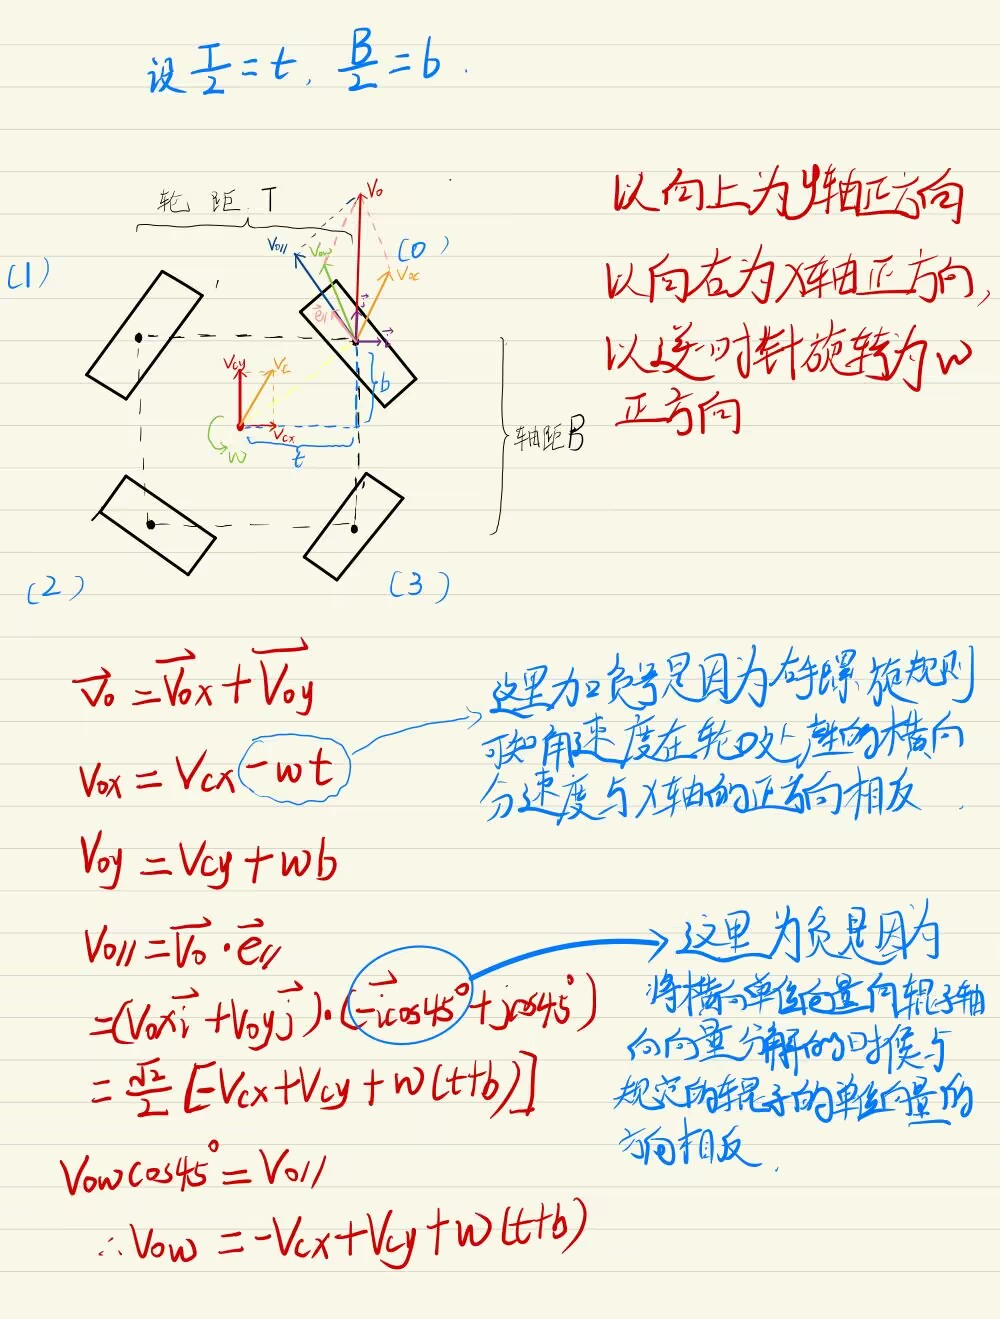 设 T/2 = t, B/2 = b.
轮 距 T
(1)
(0)
V0
V0//
V0w
V0c
e//
i
Vcy
Vc
Vcx
w
t
b
轴距B
(2)
(3)
以向上为y轴正方向
以向右为x轴正方向,
以逆时针旋转为w
正方向
V0 = V0x + V0y
V0x = Vcx - wt
这里加负号是因为右手螺旋规则
可知角速度在轮0处产生的横向
分速度与x轴的正方向相反.
V0y = Vcy + wb
V0// = V0 · e//
= (V0x i + V0y j)·(-i cos45° + j cos45°)
= √2/2 [-Vcx + Vcy + w(t+b)]
这里为负是因为
将横向单位向量向辊子轴
向向量分解的时候与
规定的辊子的单位向量的
方向相反.
V0w cos45° = V0//
∴ V0w = -Vcx + Vcy + w(t+b)